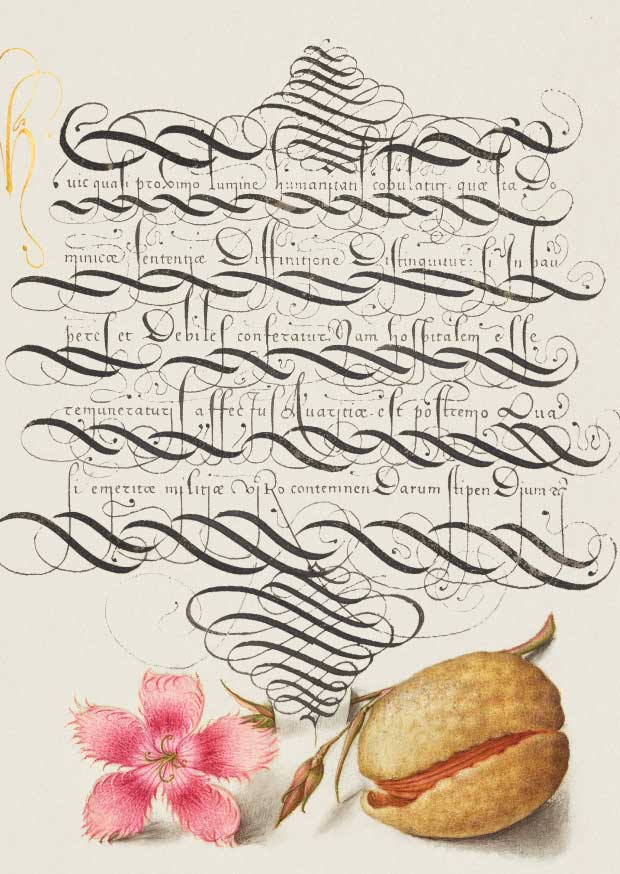 Huic quasi proximo lumine humanitatis copulatur. quæ ita Do
minicæ sententiæ Diffinitione Distinguitur: si In pau
peres et Debiles conferatur. Nam hospitalem esse
remuneraturis affectus Avaritiæ. est postremo Qua
si emeritæ militiæ viro contemnen Darum stipen Dium